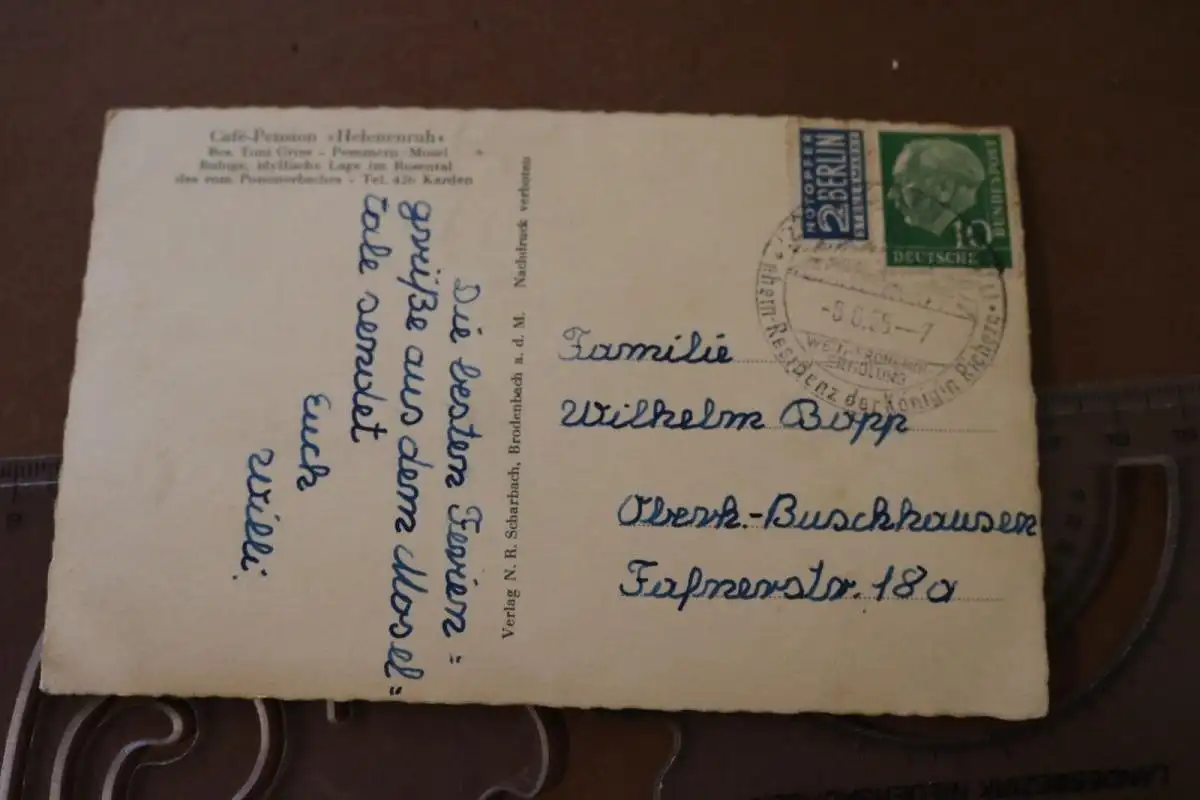 Café-Pension »Helenenruh«
Bes. Toni Gross - Pommern Mosel
Ruhige, idyllische Lage im Rosental
des rom. Pommerbaches - Tel. 426 Karden
Die besten Ferien=
grüße aus dem Mosel=
tale sendet
Euch
Willi.
Verlag N. R. Scharbach, Brodenbach a. d. M. Nachdruck verboten
NOTOPFER
2 BERLIN
STEUERMARKE
10
DEUTSCHE
BUNDESPOST
Residenz der Königin Richeza
Familie
Wilhelm Bopp
Oberh.-Buschhausen
Fafnerstr. 18a